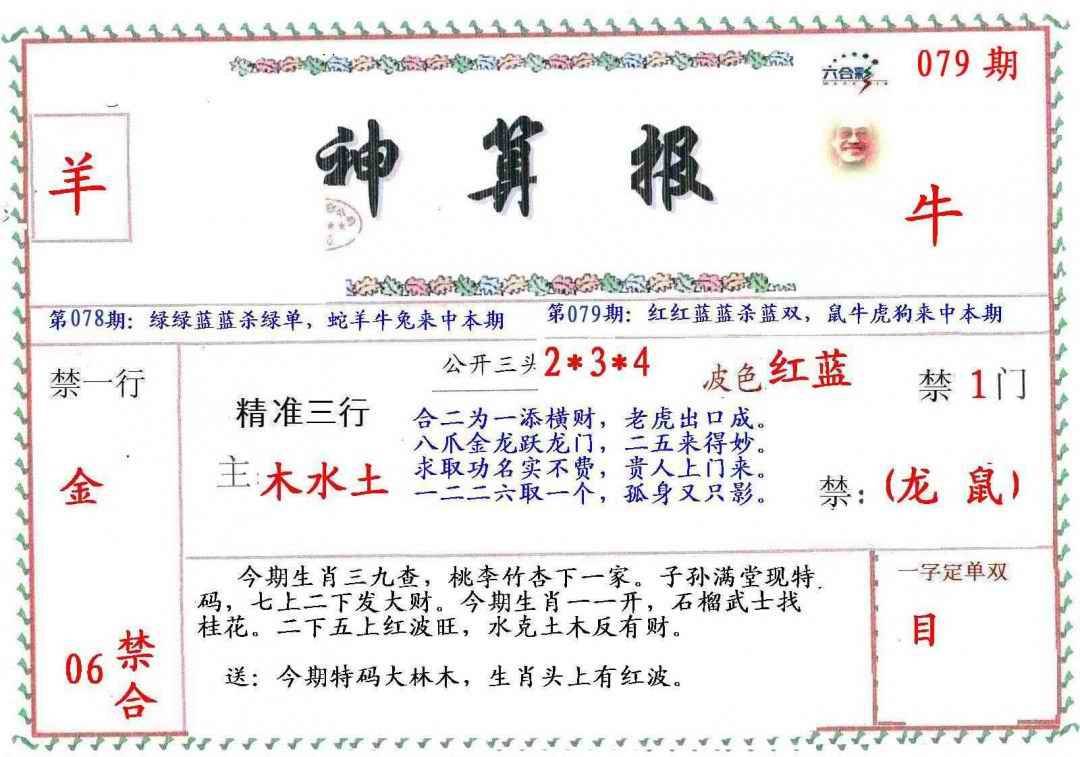 六合彩
079 期
羊
神算报
牛
第078期：绿绿蓝蓝杀绿单，蛇羊牛兔来中本期
第079期：红红蓝蓝杀蓝双，鼠牛虎狗来中本期
禁一行
金
06
禁合
公开三头 2*3*4
波色 红蓝
精准三行
主: 木水土
合二为一添横财，老虎出口成。
八爪金龙跃龙门，二五来得妙。
求取功名实不费，贵人上门来。
一二二六取一个，孤身又只影。
禁 1门
禁:(龙 鼠)
今期生肖三九查，桃李竹杏下一家。子孙满堂现特
码，七上二下发大财。今期生肖一一开，石榴武士找
桂花。二下五上红波旺，水克土木反有财。
送：今期特码大林木，生肖头上有红波。
一字定单双
目